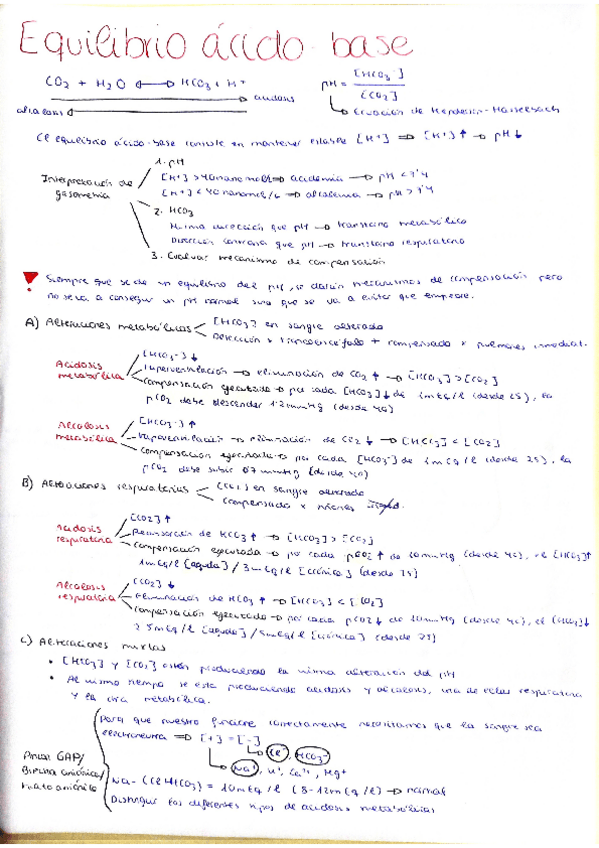 Equilibrio ácido-base
CO2 + H2O ⟷ HCO3 + H+
acidosis
alcalosis
pH = [HCO3-] / [CO2]
Ecuación de Henderson-Hasselbach
El equilibrio ácido-base consiste en mantener estable [H+] ⇒ [H+]↑ → pH↓
Interpretación de gasometría
1. pH
[H+] > 40 nanomol/l ⇒ acidemia → pH < 7'4
[H+] < 40 nanomol/l ⇒ alcalemia → pH > 7'4
2. HCO3
Misma dirección que pH → trastorno metabólico
Dirección contraria que pH → trastorno respiratorio
3. Evaluar mecanismo de compensación
Siempre que se de un equilibrio del pH, se darán mecanismos de compensación pero
no se va a conseguir un pH normal sino que se va a evitar que empeore.
A) Alteraciones metabólicas
[HCO3-] en sangre alterado
Detección x troncoencéfalo + compensado x pulmones inmediat.
Acidosis metabólica
[HCO3-]↓
Hiperventilación → eliminación de CO2 ↑ → [HCO3] > [CO2]
Compensación ejecutada → por cada [HCO3]↓ de 1mEq/l (desde 25), la
pCO2 debe descender 1'2mmHg (desde 40)
Alcalosis metabólica
[HCO3-]↑
Hipoventilación → eliminación de CO2 ↓ → [HCO3] < [CO2]
Compensación ejecutada → por cada [HCO3-] de 1mEq/l (desde 25), la
pCO2 debe subir 0'7mmHg (desde 40)
B) Alteraciones respiratorias
[CO2] en sangre alterado
Compensado x riñones
Acidosis respiratoria
[CO2]↑
Reabsorción de HCO3↑ → [HCO3] > [CO2]
Compensación ejecutada → por cada pCO2↑ de 10mmHg (desde 40), el [HCO3]↑
1mEq/l [aguda] / 3mEq/l [crónica] (desde 25)
Alcalosis respiratoria
[CO2]↓
Eliminación de HCO3↑ → [HCO3] < [CO2]
Compensación ejecutada → por cada pCO2↓ de 10mmHg (desde 40), el [HCO3]↓
2'5mEq/l [aguda] / 5mEq/l [crónica] (desde 25)
C) Alteraciones mixtas
• [HCO3-] y [CO2] están produciendo la misma alteración del pH
• Al mismo tiempo se está produciendo acidosis y alcalosis, una de ellas respiratoria
y la otra metabólica.
Anion GAP/
Brecha aniónica/
Hiato aniónico
Para que nuestro funcione correctamente necesitamos que la sangre sea
electroneutra ⇒ [+] = [-]
Cl-, HCO3-
Na+, K+, Ca2+, Mg+
Na - (Cl + HCO3) = 10mEq/l (8-12mEq/l) → normal
Distingue los diferentes tipos de acidosis metabólicas